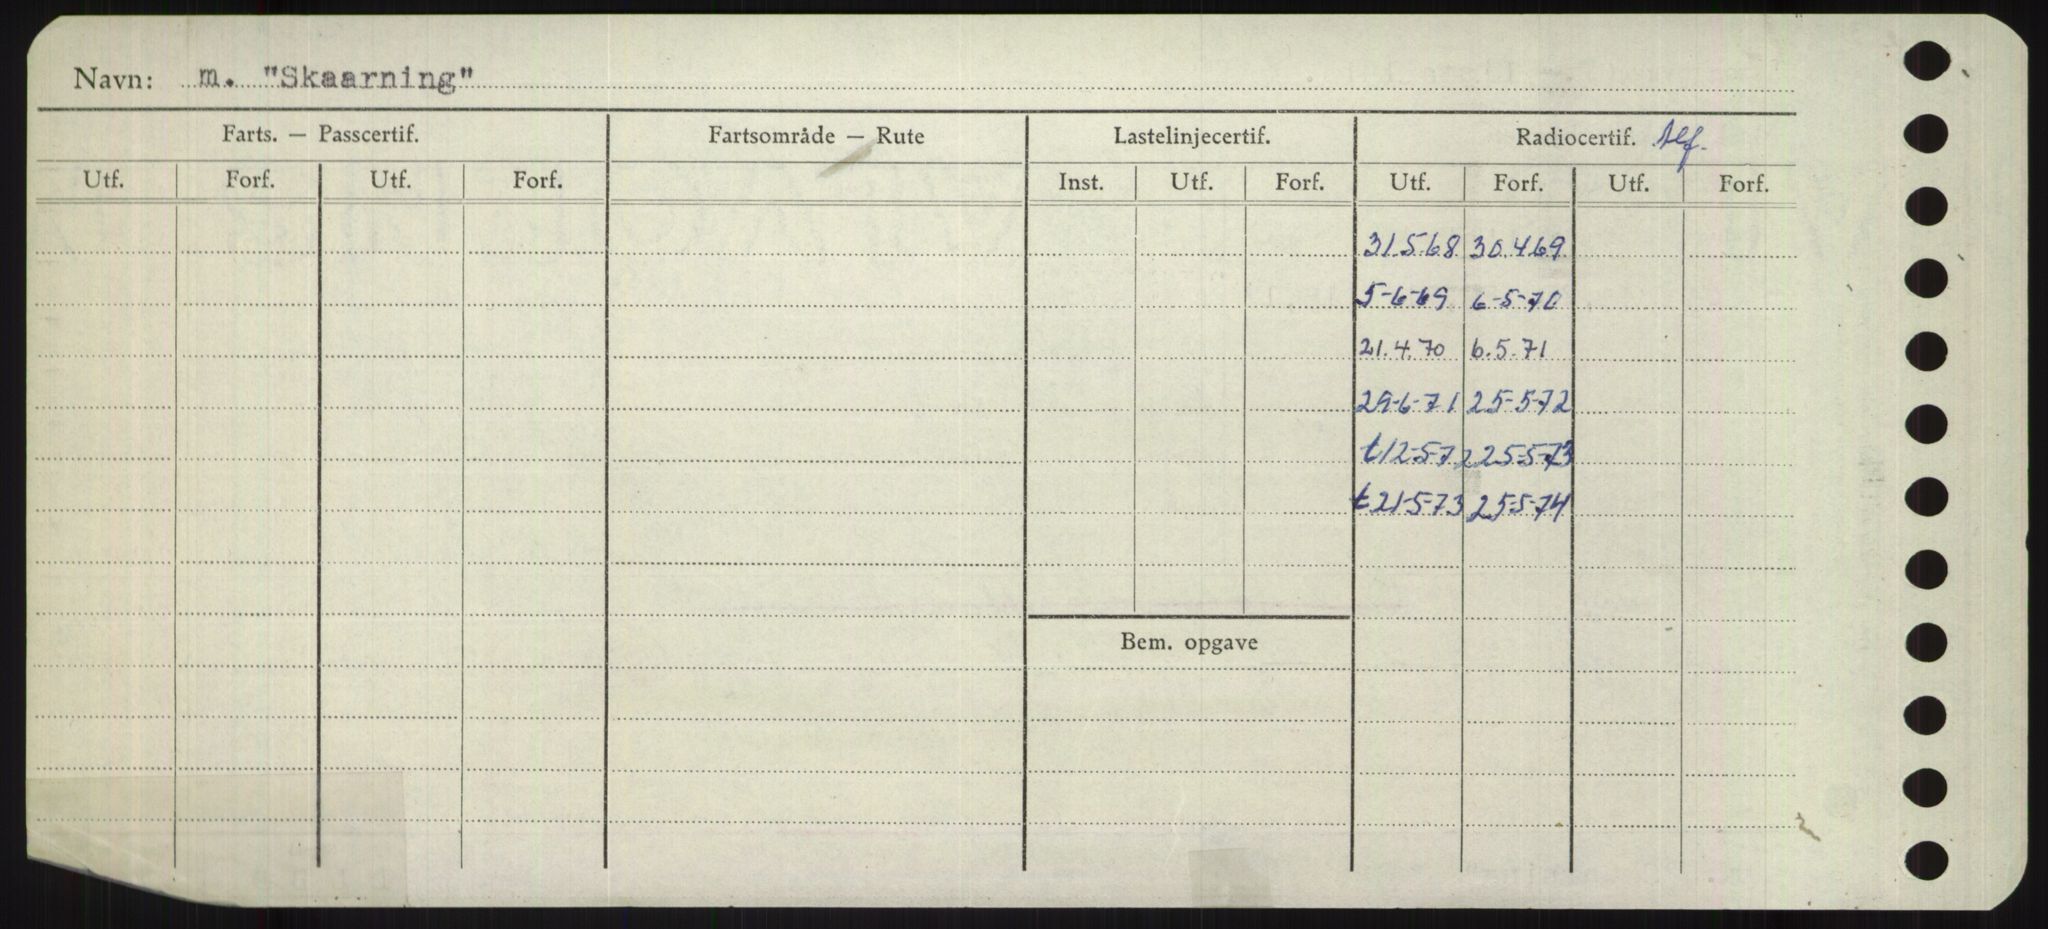 Navn: m. "Skaarning"
Farts. — Passcertif. Fartsområde — Rute Lastelinjecertif. Radiocertif. Alf.
Utf. Forf. Utf. Forf. Inst. Utf. Forf. Utf. Forf. Utf. Forf.
31.5.68 30.4.69
5-6-69 6-5-70
21.4.70 6.5.71
29-6-71 25-5-72
t12-5-72 25-5-73
t21-5-73 25-5-74
Bem. opgave